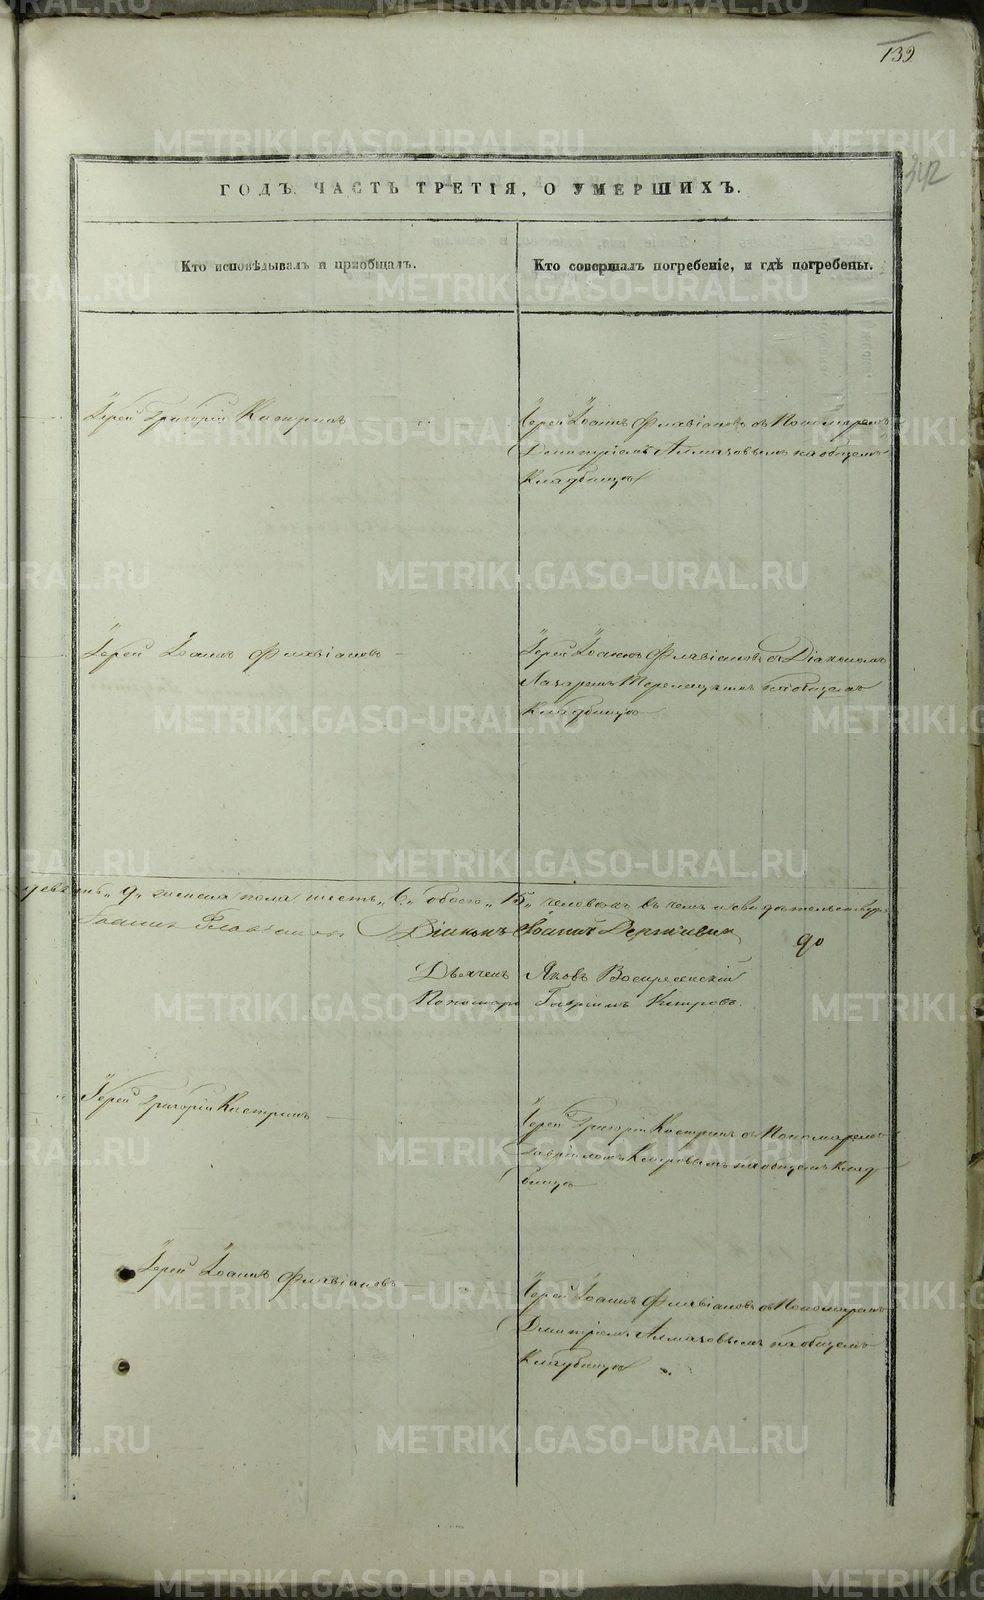 139
342
ГОДЪ. ЧАСТЬ ТРЕТІЯ, О УМЕРШИХЪ.
Кто исповѣдывалъ и пріобщалъ.
Кто совершалъ погребеніе, и гдѣ погребены.
Іерей Григорій Кастринъ
Іерей Іоаннъ Флавіановъ съ Пономаремъ
Димитріемъ Алмазовымъ на общемъ
Кладбищѣ
Іерей Іоаннъ Флавіановъ
Іерей Іоаннъ Флавіановъ съ Діакономъ
Лазаремъ на общемъ
Кладбищѣ
девять „9„ женска пола шесть „6„ обоего „15„ человѣкъ въ чемъ и свидѣтельствуемъ
Іоаннъ Флавіановъ Діаконъ Іоаннъ
Дьячекъ Яковъ Воскресенскій
Пономарь Гавріилъ Кипровъ.
Іерей Григорій Кастринъ
Іерей Григорій Кастринъ съ Пономаремъ
Гавріиломъ Кипровымъ на общемъ Клад
бищѣ
Іерей Іоаннъ Флавіановъ
Іерей Іоаннъ Флавіановъ съ Пономаремъ
Димитріемъ Алмазовымъ на общемъ
Кладбищѣ
METRIKI.GASO-URAL.RU